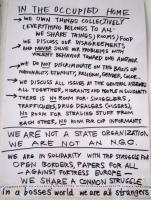 IN THE OCCUPIED HOME
→ WE OWN THINGS COLLECTIVELY
(EVERYTHING BELONGS TO ALL)
WE SHARE THINGS/ROOMS/FOOD
→ WE DISCUSS OUR DISAGREEMENTS
AND NEVER SOLVE OUR PROBLEMS WITH
VIOLENT BEHAVIOR TOWARD ONE ANOTHER
→ WE DO NOT DISCRIMINATE ON THE BASIS OF
NATIONALITY, ETHNICITY, RELIGION, GENDER, COLOR...
→ WE DISCUSS ALL ISSUES AT THE GENERAL ASSEMBLY
ALL TOGETHER, MIGRANTS AND PEOPLE IN SOLIDARITY
→ THERE IS NO ROOM FOR: SMUGGLERS,
TRAFFICKERS, DRUG DEALERS (USERS),
NO ROOM FOR STEALING STUFF FROM
EACH OTHER, NO ROOM FOR COP INFORMANTS
WE ARE NOT A STATE ORGANIZATION
WE ARE NOT AN N.G.O.
WE ARE IN SOLIDARITY WITH THE STRUGGLE FOR
OPEN BORDERS, PAPERS FOR ALL
AGAINST FORTRESS EUROPE
WE SHARE A COMMON STRUGGLE
in a bosses world we are all strangers